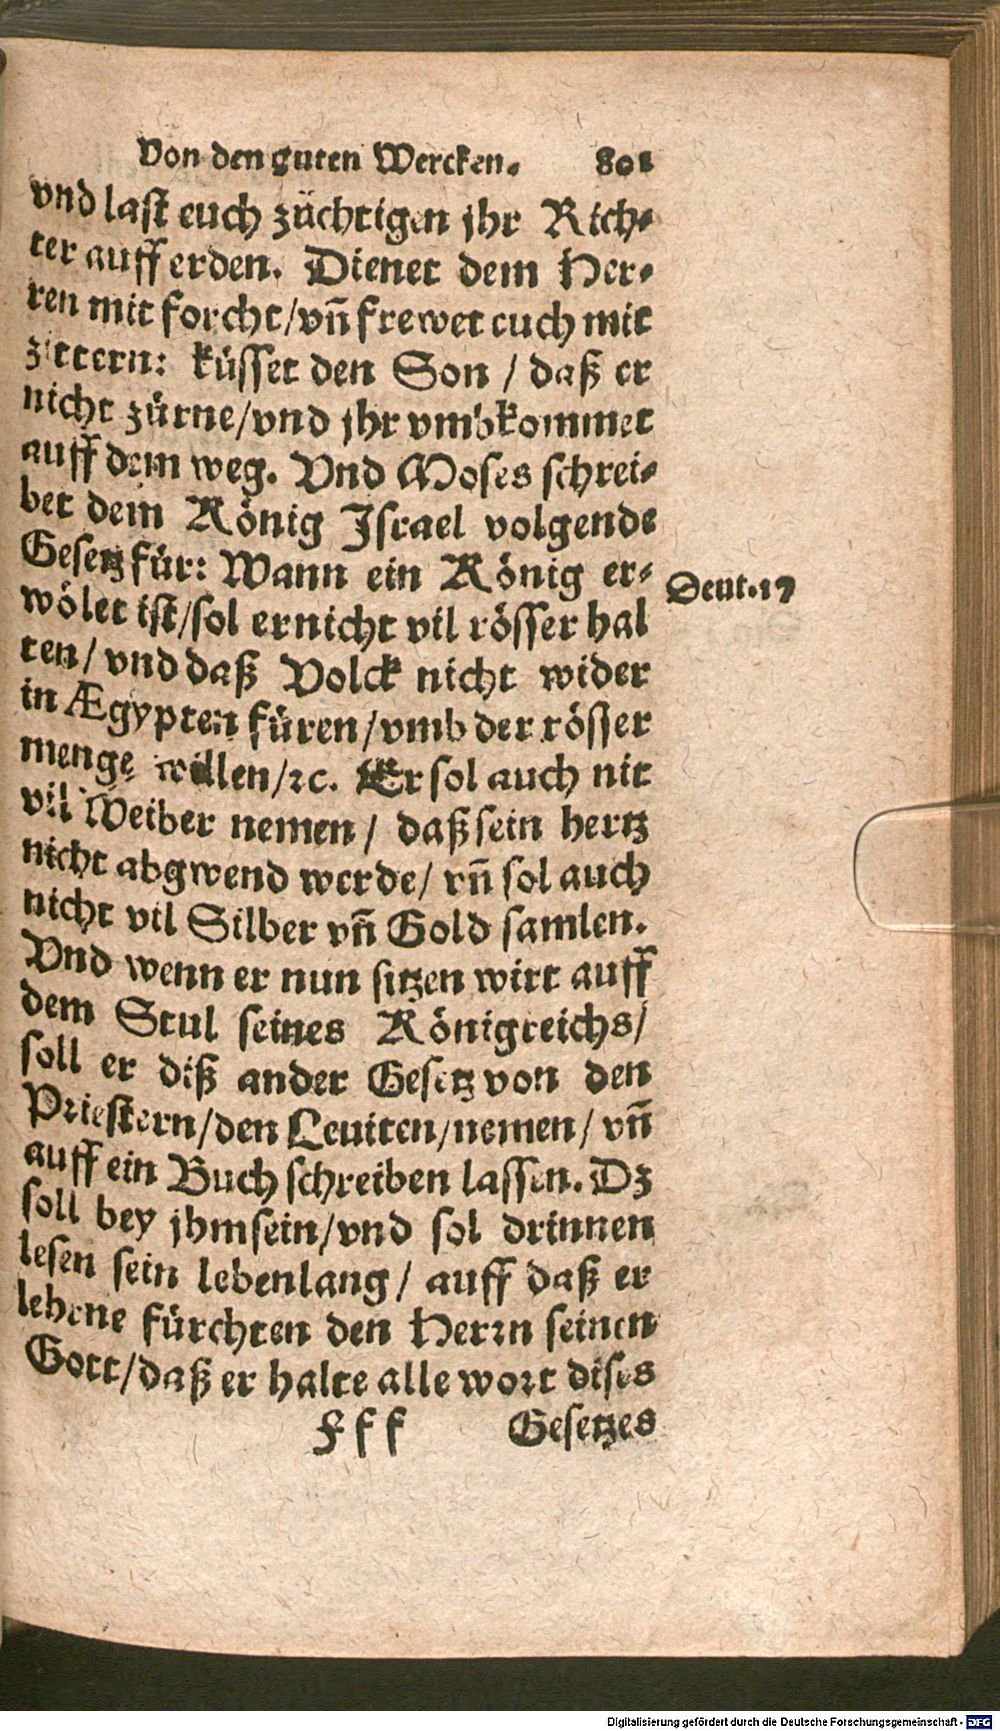 Von den guten Wercken. 801
vnd last euch züchtigen jhr Rich-
ter auff erden. Dienet dem Her-
ren mit forcht/vn̄ frewet euch mit
zittern: küsset den Son / daß er
nicht zürne/vnd jhr vmbkommet
auff dem weg. Vnd Moses schrei-
bet dem König Israel volgende
Gesetz für: Wann ein König er-
Deut.17
wölet ist/sol er nicht vil rösser hal
ten/ vnd daß Volck nicht wider
in Ægypten füren/vmb der rösser
menge willen/ꝛc. Er sol auch nit
vil Weiber nemen/ daß sein hertz
nicht abgwend werde/ vn̄ sol auch
nicht vil Silber vn̄ Gold samlen.
Vnd wenn er nun sitzen wirt auff
dem Stul seines Königreichs/
soll er diß ander Gesetz von den
Priestern/den Leuiten/nemen/ vn̄
auff ein Buch schreiben lassen. Dz
soll bey jhm sein/vnd sol drinnen
lesen sein lebenlang/ auff daß er
lehrne fürchten den Herrn seinen
Gott/daß er halte alle wort dises
Fff Gesetzes
Digitalisierung gefördert durch die Deutsche Forschungsgemeinschaft - DFG